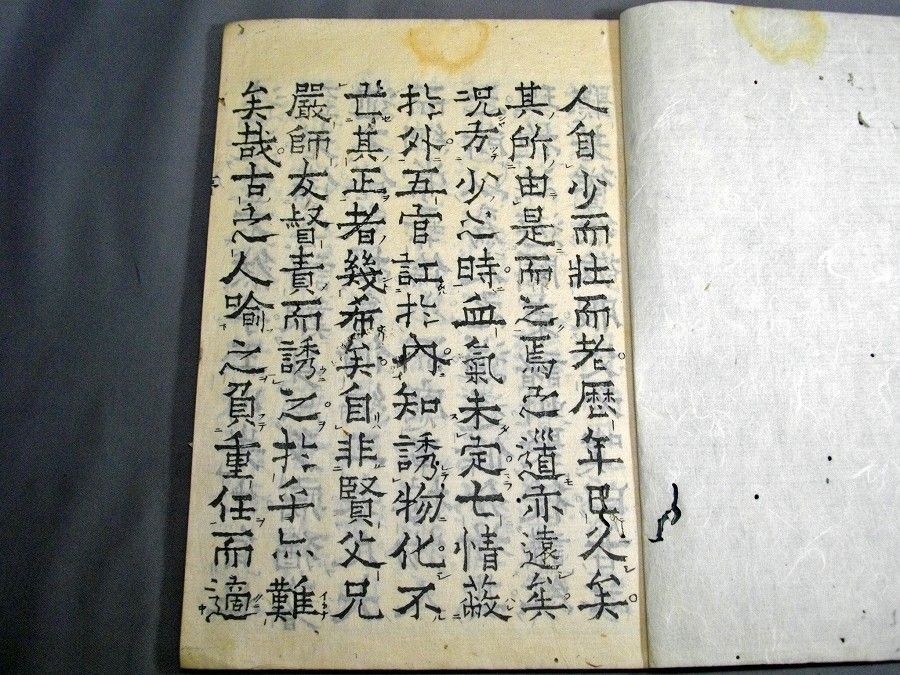 人自少而壯而老歴年已久矣
其所由是而之焉之道亦遠矣
况方少之時血氣未定七情蔽
於外五官訌於内知誘物化不
亡其正者幾希矣自非賢父兄
嚴師友督責而誘之於乎亦難
矣哉古之人喩之負重任而適